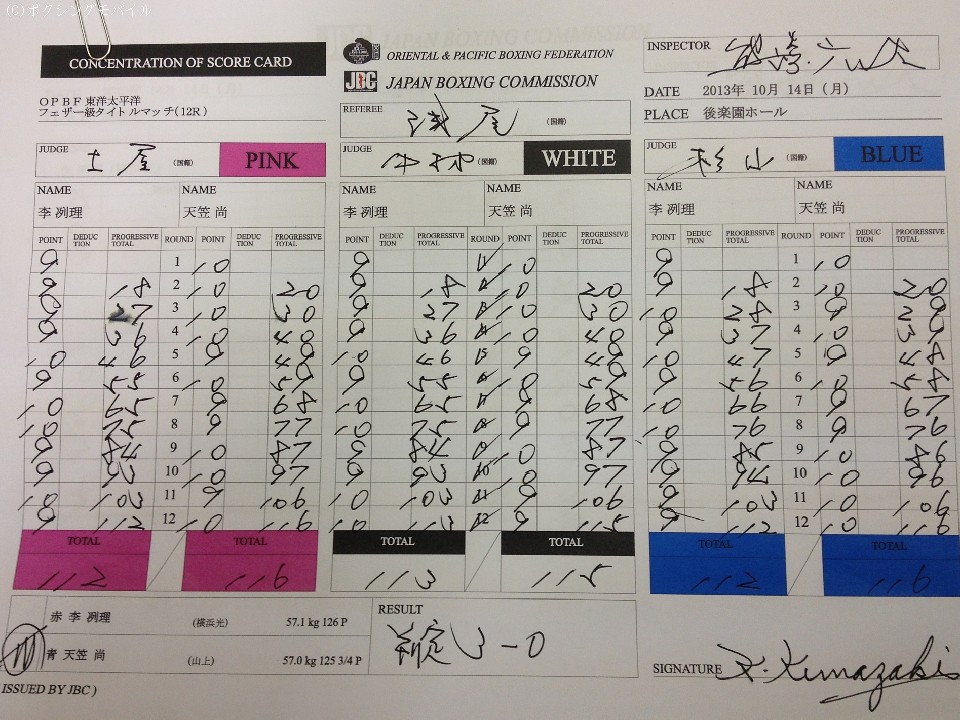 (C)ボクシングモバイル
CONCENTRATION OF SCORE CARD
ORIENTAL & PACIFIC BOXING FEDERATION
JBC JAPAN BOXING COMMISSION
INSPECTOR
DATE 2013年 10月 14日 (月)
PLACE 後楽園ホール
OPBF 東洋太平洋
フェザー級タイトルマッチ(12R)
REFEREE (国籍)
JUDGE 土屋 (国籍) PINK
JUDGE (国籍) WHITE
JUDGE 杉山 (国籍) BLUE
NAME NAME NAME NAME NAME NAME
李 冽理 天笠 尚 李 冽理 天笠 尚 李 冽理 天笠 尚
POINT DEDUCTION PROGRESSIVE TOTAL ROUND POINT DEDUCTION PROGRESSIVE TOTAL POINT DEDUCTION PROGRESSIVE TOTAL ROUND POINT DEDUCTION PROGRESSIVE TOTAL POINT DEDUCTION PROGRESSIVE TOTAL ROUND POINT DEDUCTION PROGRESSIVE TOTAL
9 1 10 9 10 9 1 10
9 18 2 10 20 9 18 10 20 9 18 2 10 20
9 27 3 10 30 9 27 10 30 10 28 3 9 29
9 36 4 10 40 9 36 10 40 9 37 4 10 39
10 46 5 9 49 10 46 9 49 10 47 5 9 48
9 55 6 10 59 9 55 10 59 9 56 6 10 58
10 65 7 9 68 10 65 9 68 10 66 7 9 67
10 75 8 9 77 10 75 9 77 10 76 8 9 76
9 84 9 10 87 9 84 10 87 9 85 9 10 86
9 93 10 10 97 9 93 10 97 9 94 10 10 96
10 103 11 9 106 10 103 9 106 9 103 11 10 106
9 112 12 10 116 10 113 9 115 9 112 12 10 116
TOTAL TOTAL TOTAL TOTAL TOTAL TOTAL
112 116 113 115 112 116
赤 李 冽理 (横浜光) 57.1 kg 126 P
青 天笠 尚 (山上) 57.0 kg 125 3/4 P
RESULT
判定 3-0
SIGNATURE
ISSUED BY JBC )